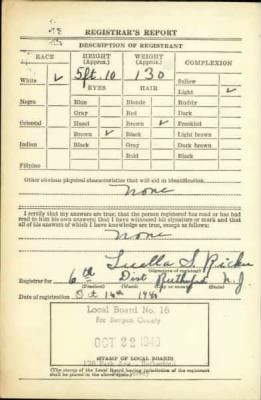 REGISTRAR'S REPORT
DESCRIPTION OF REGISTRANT
RACE HEIGHT (Approx.) WEIGHT (Approx.) COMPLEXION
5ft. 10 130
White ✓ Sallow
EYES HAIR Light ✓
Negro Blue Blonde Ruddy
Gray Red Dark
Oriental Hazel Brown ✓ Freckled
Brown ✓ Black Light brown
Indian Black Gray Dark brown
Bald Black
Filipino
Other obvious physical characteristics that will aid in identification
None
I certify that my answers are true; that the person registered has read or has had
read to him his own answers; that I have witnessed his signature or mark and that
all of his answers of which I have knowledge are true, except as follows:
None
Luella S.
(Signature of registrar)
Registrar for 6th Dist Rutherford N.J.
(Precinct) (Ward) (City or county) (State)
Date of registration Oct 16th 1940
Local Board No. 16
For Bergen County
OCT 22 1940
STAMP OF LOCAL BOARD
(The stamp of the Local Board having jurisdiction of the registrant
shall be placed in the above space.)